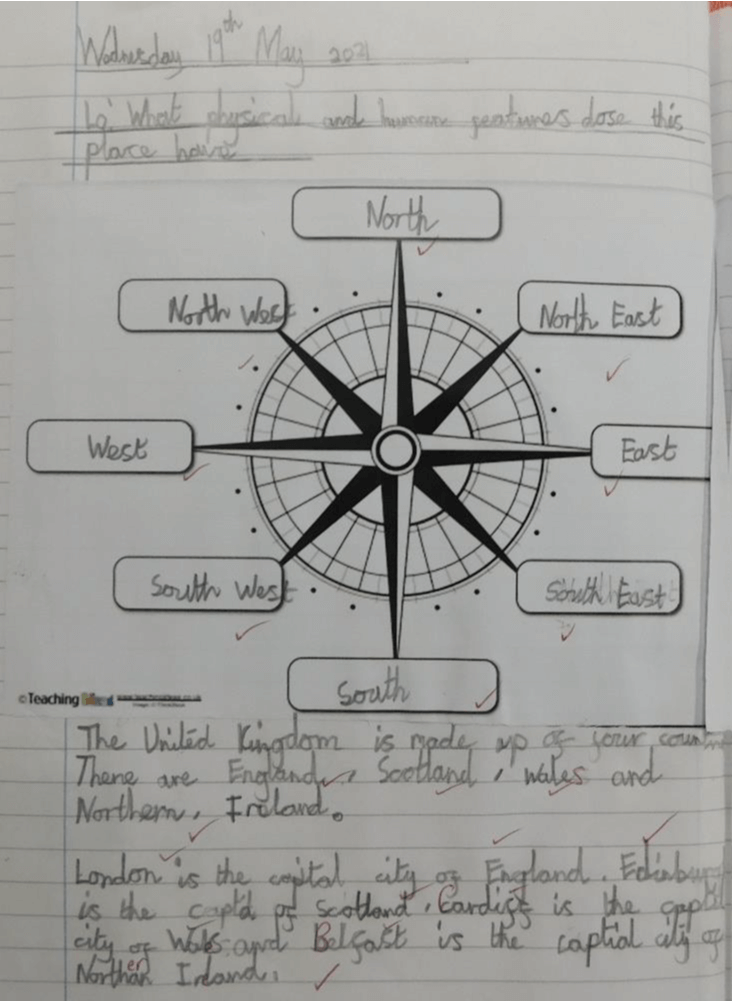 Wednesday 19th May 2021
Lo: What physical and human features dose this
place have
North
North West
North East
West
East
South West
South East
South
©Teaching
The United Kingdom is made up of four
There are England, Scotland, Wales and
Northern, Ireland.
London is the capital city of England. Edinburg
is the captal of Scotland. Cardiff is the
city of Wales and Belfast is the captial city of
Northern Ireland.